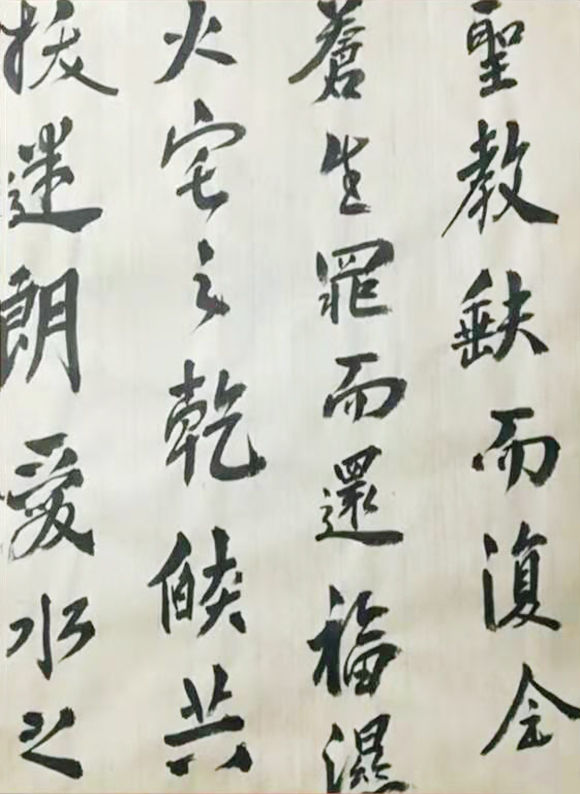 聖教缺而復全
蒼生罪而還福濕
火宅之乾燄共
拔迷朗愛水之